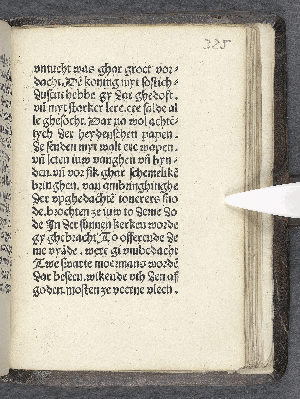 325
vnnucht was ghar groet vor-
dacht. Dē koning myt sostich-
dusent hebbe gy dar ghedoft.
vñ myt starker lere. ere salde al
le ghesocht. Dar na wol achtē-
tych der heydenschen papen.
De senden myt walt ere wapen.
vñ leten iuw vanghen vñ byn-
den. vñ vor sik ghar schemelikē
bringhen. van anbringhinghe
der vpghedachtē touerers sno
de. brochten ze iuw to deme do-
de In der sunnen kerken worde
gy ghebracht. To offerende de
me vyāde. were gi vmbedacht
Twe swarte moermans wordē
dar beseen. wikende vth den af
goden. mosten ze veerne vleen.